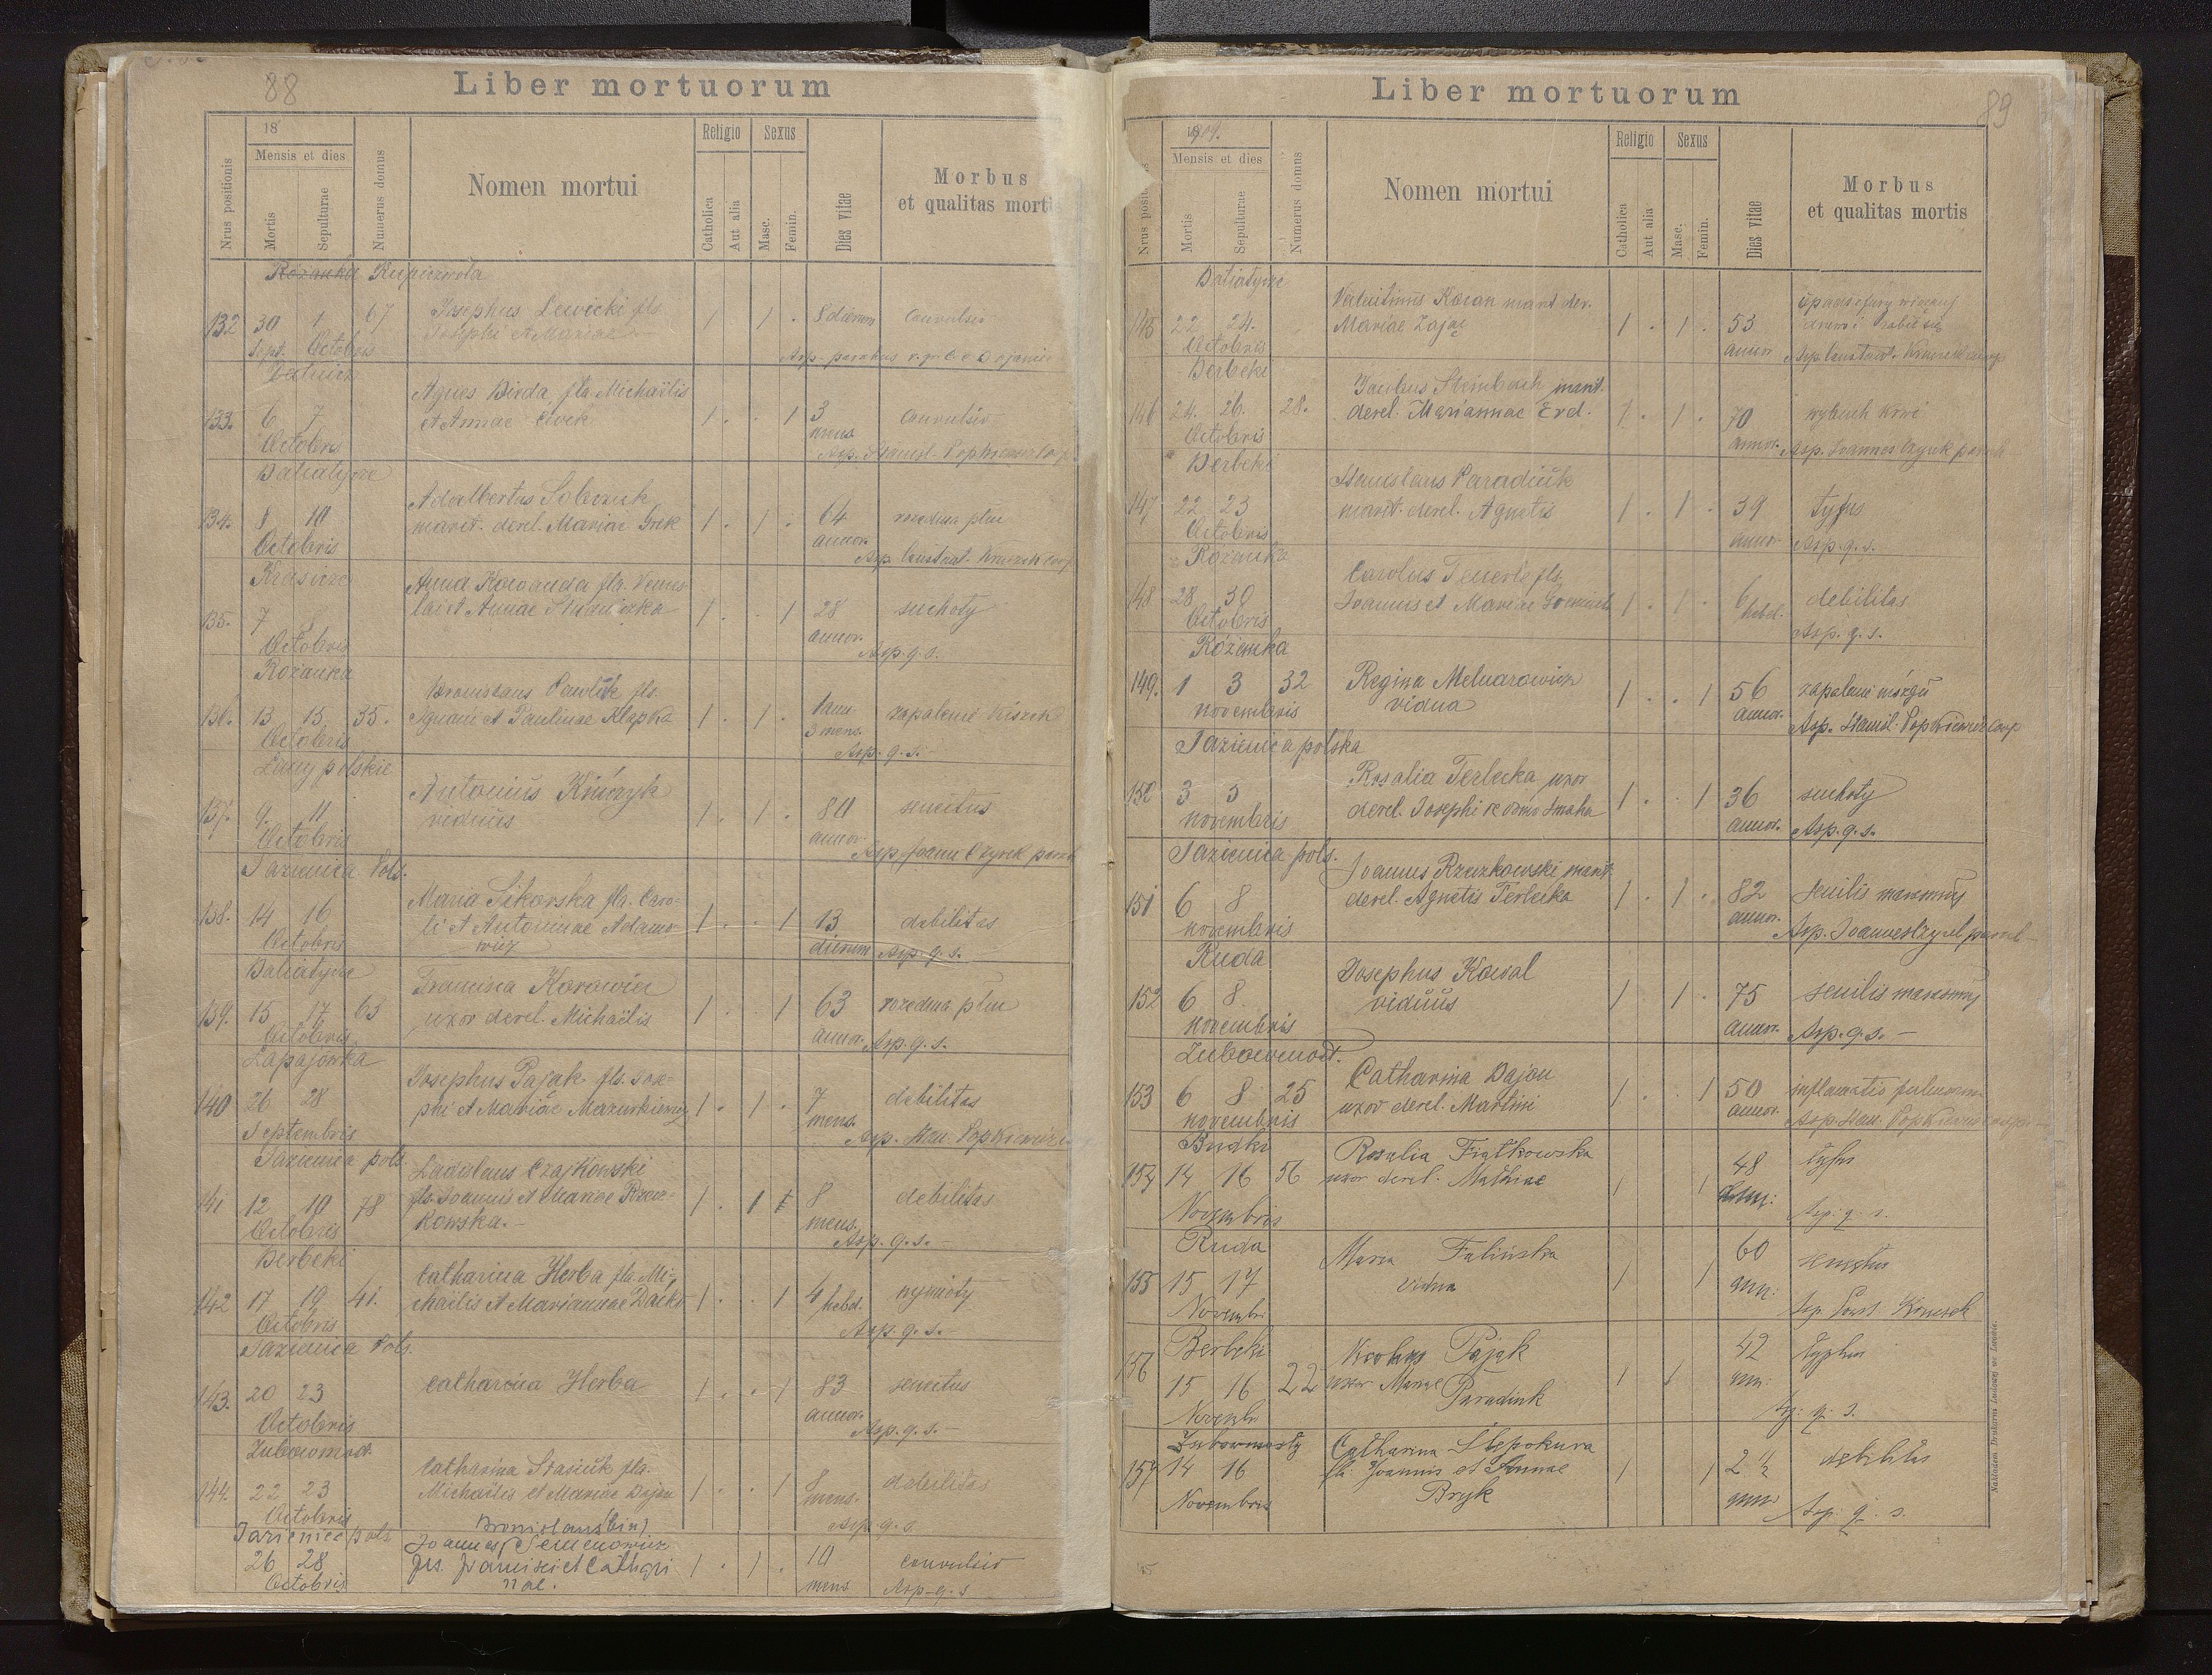 88
Liber mortuorum
Nrus positionis
18
Mensis et dies
Mortis
Sepulturae
Numerus domus
Nomen mortui
Religio
Catholica
Aut alia
Sexus
Masc.
Femin.
Dies vitae
Morbus
et qualitas mortis
Rożanka Kupiczwola
132 30 1 67 Josephus Lewicki fls. 1 . 1 . 8 dierum convulsio
Sept. Octobris Josephi et Mariae
Asp. parochus r. gr. c.
133. 6 7 Agnes Birda fla. Michaëlis 1 . . 1 3 convulsio
Octobris et Annae mens.
Asp. Stanisl. Popkiewicz coop
Batiatycze
134. 8 10 Adalbertus Sobczuk
marit. derel. Mariae Grek 1 . 1 . 64 rozedma płuc
Octobris annor.
Asp. Constant. Kruczek coop
135. 7 Anna fla.
et Annae 1 . . 1 28 suchoty
Octobris annor. Asp. q. s.
Rożanka
136. 13 15 35. Bronislaus Pawlik fls.
Ignatii et Paulinae Klapka 1 . 1 . 1 ann. zapalenie kiszek
Octobris 3 mens.
Asp. q. s. -
Łany polskie
137. 9. 11 Antonius
viduus 1 . 1 . 80 senectus
Octobris annor.
Asp. Joann Czyrek paroch
Jazienica Pols.
138. 14 16 Maria Sikorska fla. Caro-
li et Antoninae Adamo 1 . . 1 13 debilitas
wicz
Octobris dierum Asp. q. s. -
Batiatycze
139. 15 17 63 Francisca Karawia
uxor derel. Michaëlis 1 . . 1 63 rozedma płuc
Octobris annor. Asp. q. s.
Łapajówka
140 26 28 Josephus Pająk fls. Jose-
phi et Mariae Mazurkiewicz 1 . 1 . 7 debilitas
Septembris mens.
Asp. Stan. Popkiewicz
Jazienica pols.
141 12 10 78 Ladislaus Czajkowski
fls. Joannis et Mariae Rzecz-
kowska. - 1 . 1 1 8 debilitas
Octobris mens.
Asp. q. s. -
Berbeki
142 17 19 41. Catharina Herba fla. Mi-
chaëlis et Mariannae 1 . . 1 4 hebd. wymioty
Octobris
Asp. q. s. -
Jazienica Pols.
143. 20 23 Catharina Herba 1 . . 1 83 senectus
Octobris annor.
Asp. q. s.
Zubowmost.
144. 22 23 Catharina Stasiuk fla.
Michaëlis et Mariae Dajou 1 . . 1 8 debilitas
Octobris mens.
Asp. q. s.
Jazienice pols.
Bronislaus (bin)
26 28 Joannes Semenowicz
fls. Francisci et Cathari 1 . 1 . 10 convulsio
nae.
Octobris mens Asp. q. s
89
Liber mortuorum
Nrus posit
1901.
Mensis et dies
Mortis
Sepulturae
Numerus domus
Nomen mortui
Religio
Catholica
Aut alia
Sexus
Masc.
Femin.
Dies vitae
Morbus
et qualitas mortis
Batiatycze
145 22 24. Valentinus Kocan marit der.
Mariae Zając 1 . 1 . 53 zabił się
Octobris annor. Asp. Constant. Kruczek coop
Berbeki
146 24. 26. 28. Jacobus Steinbach marit.
derel. Mariannae Erd. 1 . 1 . 70 wybuch krwi
Octobris annor. Asp. Joannes Czyrek paroch
Berbeki
147 22 23 Stanislaus Paradiuk
marit. derel. Agnetis 1 . 1 . 39 tyfus
Octobris annor. Asp. q. s.
Rożanka
148 28 30 Carolus fls.
Joannis et Mariae 1 . 1 . 6 hebd. debilitas
Octobris Asp. q. s.
Rożanka
149. 1 3 32 Regina Melnarowicz
vidua 1 . . 1 56 zapalenie mózgu
novembris annor. Asp. Stanisl. Popkiewicz coop
Jazienica polska
150 3 5 Rosalia Terlecka uxor
derel. Josephi de domo Smaha 1 . . 1 36 suchoty
novembris annor. Asp. q. s.
Jazienica pols.
151 6 8 Joannes Rzeczkowski marit.
derel. Agnetis Terlecka 1 . 1 . 82 senilis marasmus
novembris annor. Asp. Joannes Czyrek paroch -
Ruda
152 6 8. Josephus Kowal
viduus 1 1 . 75 senilis marasmus
novembris annor. Asp. q. s. -
Zubowmost.
153 6 8 25 Catharina Dajou
uxor derel. Martini 1 . . 1 50 inflamatio pulmon.
novembris annor. Asp. Stan. Popkiewicz coop
Budki
154 14 16 56 Rosalia Fiatkowska
uxor derel. Mathiae 1 1 48 tyfus
Novembris ann: Asp. q. s.
Ruda
155 15 17 Maria Falińska
vidua 1 1 60 senectus
Novembr. ann: Asp. Const. Kruczek
Berbeki
156 15 16 22 Pająk
uxor Mariae Paradiuk 1 1 42 typhus
Novembr. ann: Asp: q: s.
Zubowmosty
157 14 16 Catharina Ślepokura
fla. Joannis et Annae
Bryk 1 1 2 ½ debilitas
Novembris ann. Asp. q. s.
Nakładem Drukarni Ludowej we Lwowie.